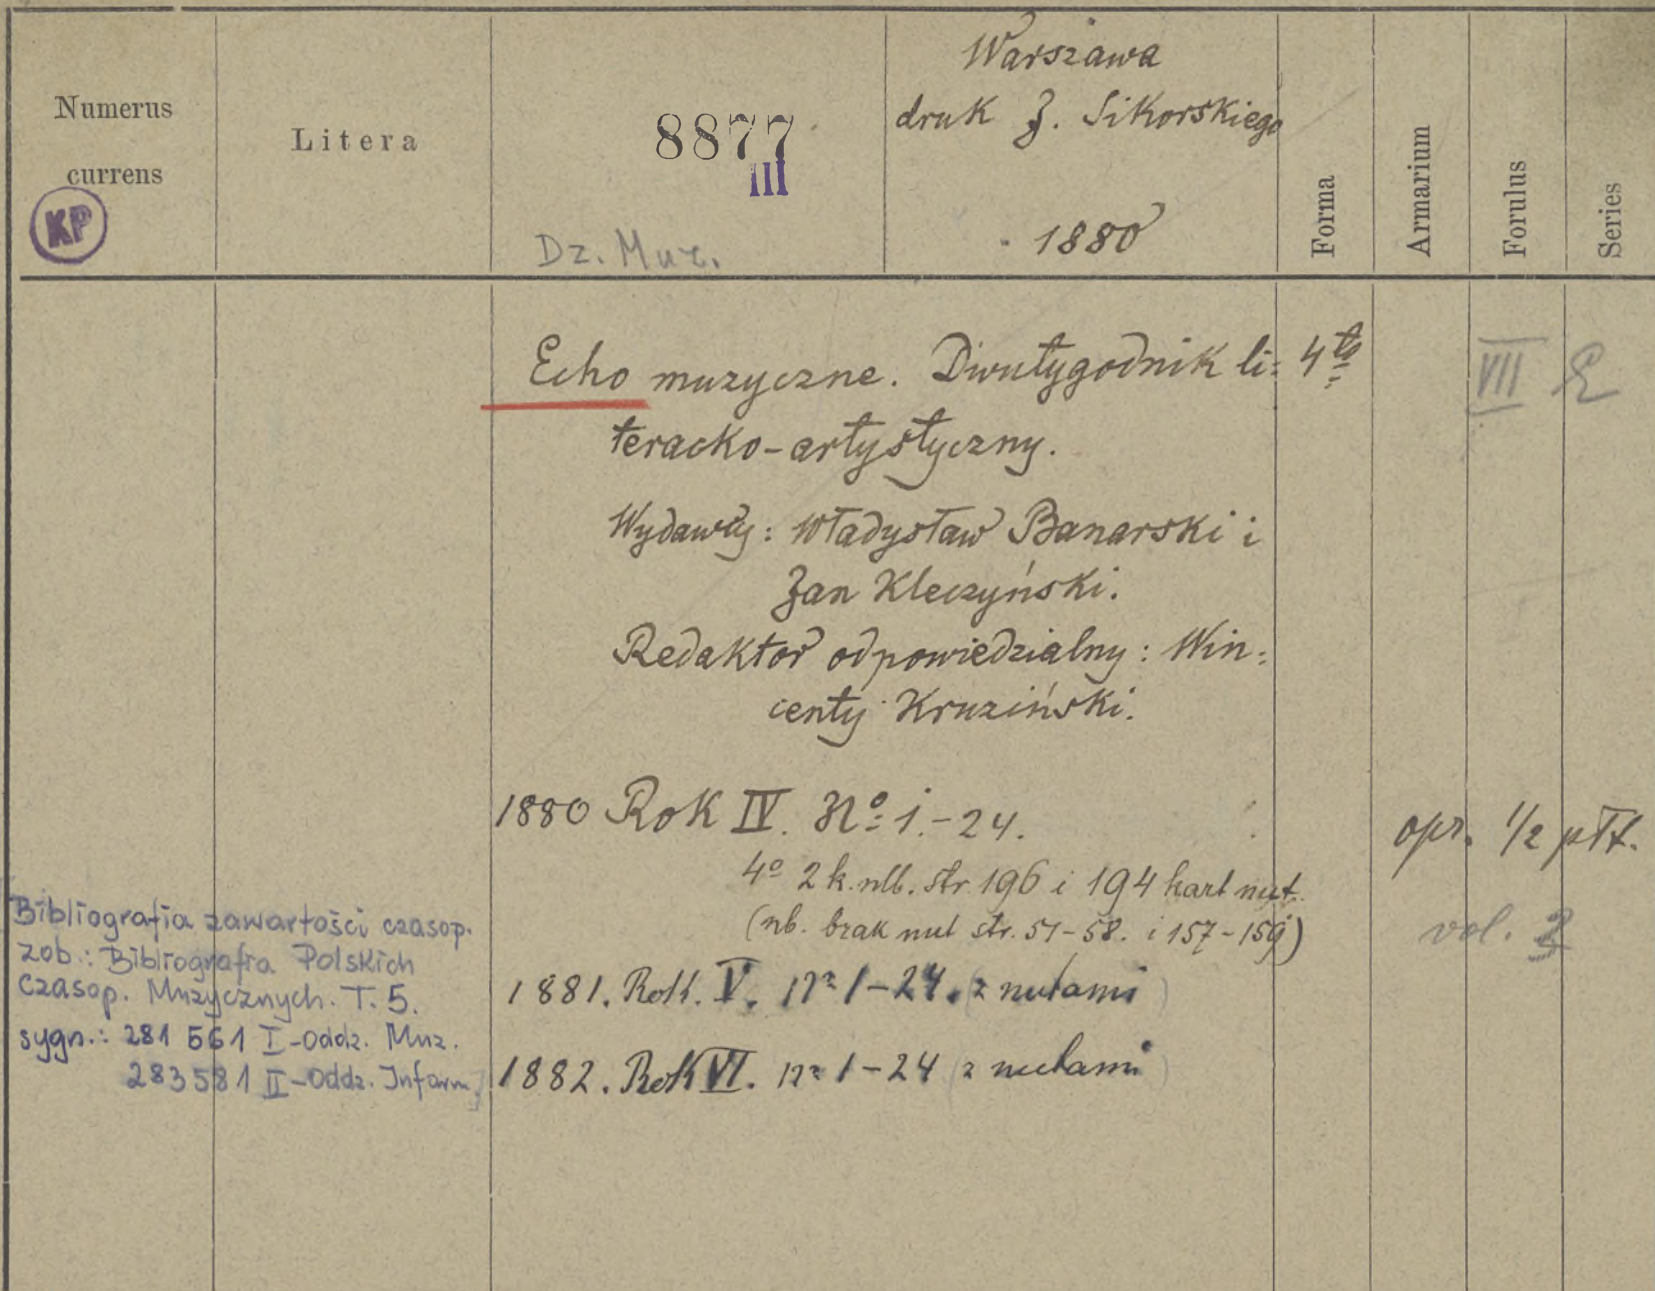 Numerus
currens
KP
Litera
8877
III
Dz. Muz.
Warszawa
druk J. Sikorskiego
1880
Forma
Armarium
Forulus
Series
Echo muzyczne. Dwutygodnik li=
teracko-artystyczny.
4to
VII
Wydawcy: Władysław Banarski i
Jan Kleczyński.
Redaktor odpowiedzialny: Win=
centy Kruziński.
1880 Rok IV. No 1.-24.
opr. 1/2 płt.
4o 2 k. nlb. str. 196 i 194 kart nut.
(nb. brak nut str. 51-58. i 157-159)
vol. 3
1881. Rok. V. nr 1-24. (z nutami)
1882. Rok VI. nr 1-24 (z nutami)
Bibliografia zawartości czasop.
zob.: Bibliografia Polskich
Czasop. Muzycznych. T. 5.
sygn.: 281 561 I-Oddz. Muz.
283581 II-Oddz. Inform.